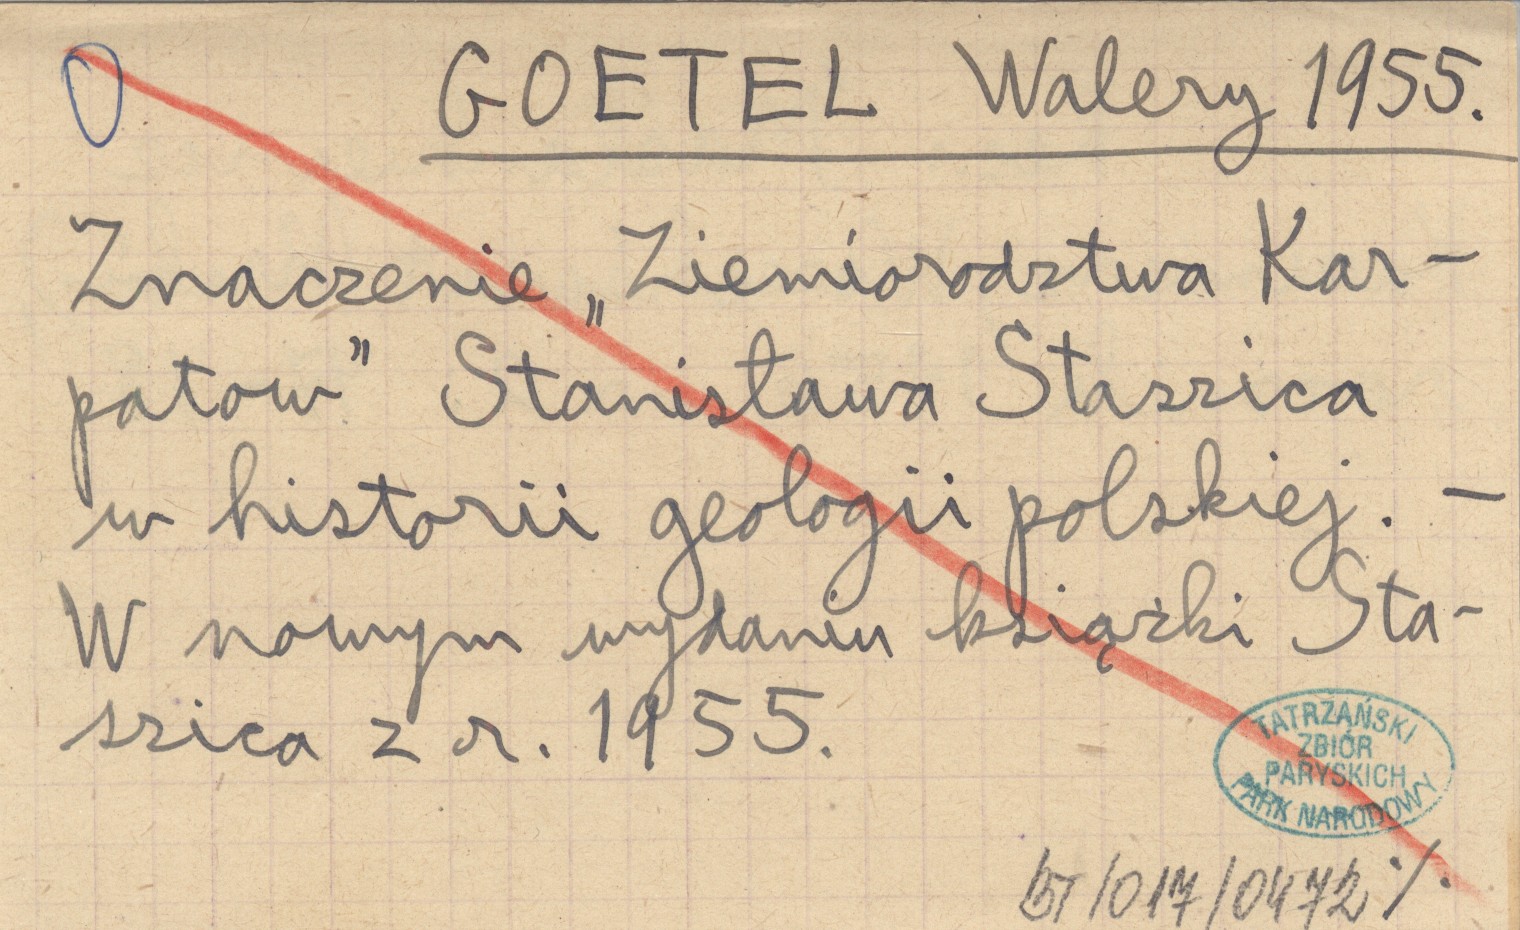 O GOETEL Walery 1955.
Znaczenie „Ziemiorodztwa Kar-
patow” Stanisława Staszica
w historii geologii polskiej. —
W nowym wydaniu książki Sta-
szica z r. 1955.
TATRZAŃSKI
ZBIÓR
PARYSKICH
PARK NARODOWY
/017/0472 ·/.